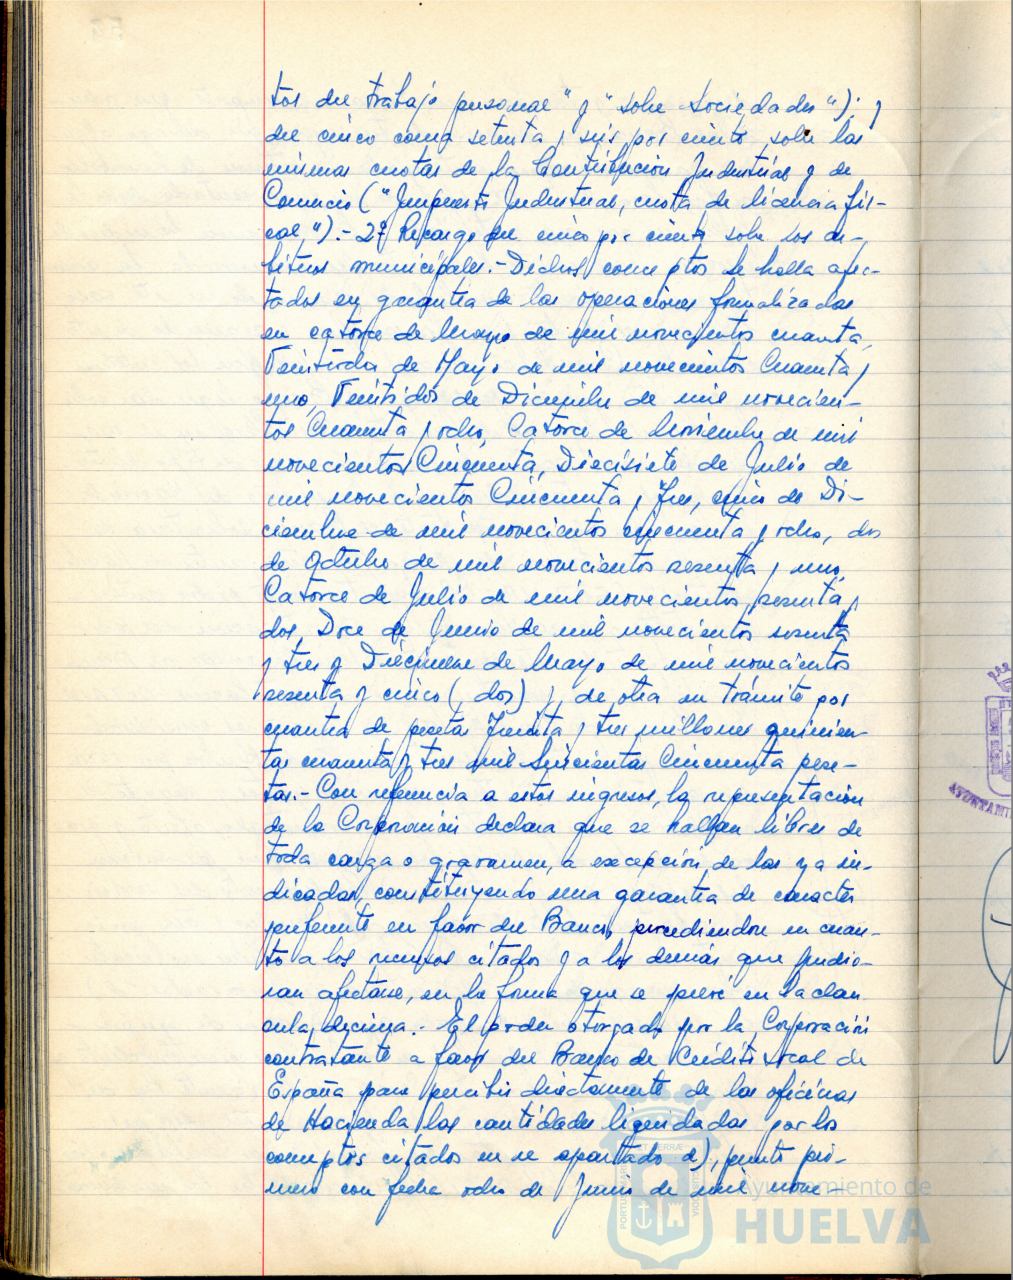 tos del trabajo personal" y "sobre Sociedades"); y
del cinco coma setenta y seis por ciento sobre las
mismas cuotas de la Contribución Industrial y de
Comercio ("Impuesto Industrial, cuota de licencia fis-
cal").- 2º Recargo del cinco por ciento sobre los ar-
bitrios municipales.- Dichos conceptos se halla afec-
tados en garantía de las operaciones formalizadas
en catorce de Mayo de mil novecientos cuarenta,
Veintidos de Mayo de mil novecientos Cuarenta y
uno, Veintidós de Diciembre de mil novecien-
tos Cuarenta y ocho, Catorce de Noviembre de mil
novecientos Cincuenta, Diecisiete de Julio de
mil novecientos Cincuenta y Tres, cinco de Di-
ciembre de mil novecientos cincuenta y ocho, dos
de Octubre de mil novecientos sesenta y uno,
Catorce de Julio de mil novecientos sesenta y
dos, Doce de Junio de mil novecientos sesenta
y tres y Diecinueve de Mayo de mil novecientos
sesenta y cinco (dos) y, de otra en trámite por
cuantía de pesetas Treinta y tres millones quinien-
tas cuarenta y tres mil Seiscientas Cincuenta pese-
tas.- Con referencia a estos ingresos, la representación
de la Corporación declara que se hallan libres de
toda carga o gravamen, a excepción de las ya in-
dicadas, constituyendo una garantía de caracter
preferente en favor del Banco, procediendose en cuan-
to a los recursos citados y a los demás que pudie-
ran afectarse, en la forma que se prevé en la cláu-
sula decima.- El poder otorgado por la Corporación
contratante a favor del Banco de Crédito Local de
España para percibir directamente de las oficinas
de Hacienda las cantidades liquidadas por los
conceptos citados en el apartado a), punto pri-
mero con fecha ocho de Junio de mil nove-
Ayuntamiento de
HUELVA